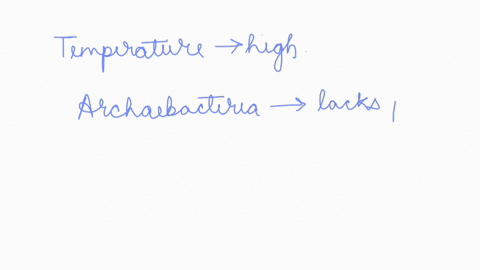 Temperature → high.
Archaebacteria → lacks